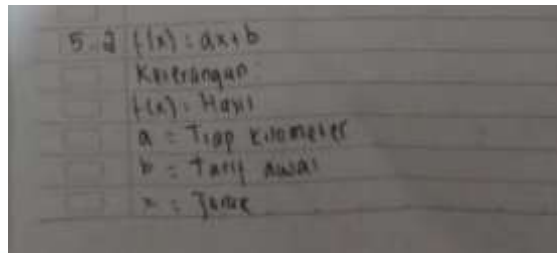 5.2 f(x) : ax+b
Keterangan
f(x) : Hasil
a = Tiap kilometer
b = Tarif awal
x = Jarak